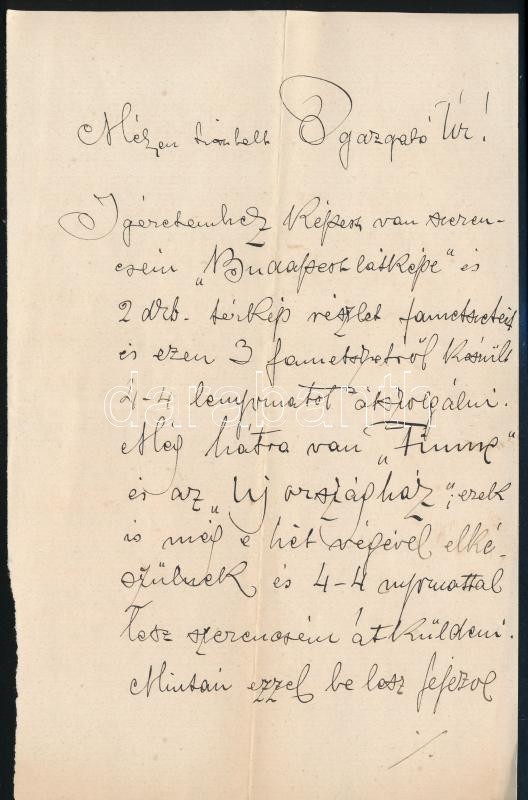 Mélyen tisztelt Igazgató Úr!
Igéretemhez képest van szeren-
csém „Budapest látképe“ és
2 drb. térkép részlet fametszetét
és ezen 3 fametszetről készült
4-4 lenyomatot átszolgálni.
Még hátra van „Fiume“
és az „Uj országház“; ezek
is még e hét végével elké-
szülnek és 4-4 nyomattal
lesz szerencsém átküldeni.
Mintán ezzel be lesz fejezve
darabanth